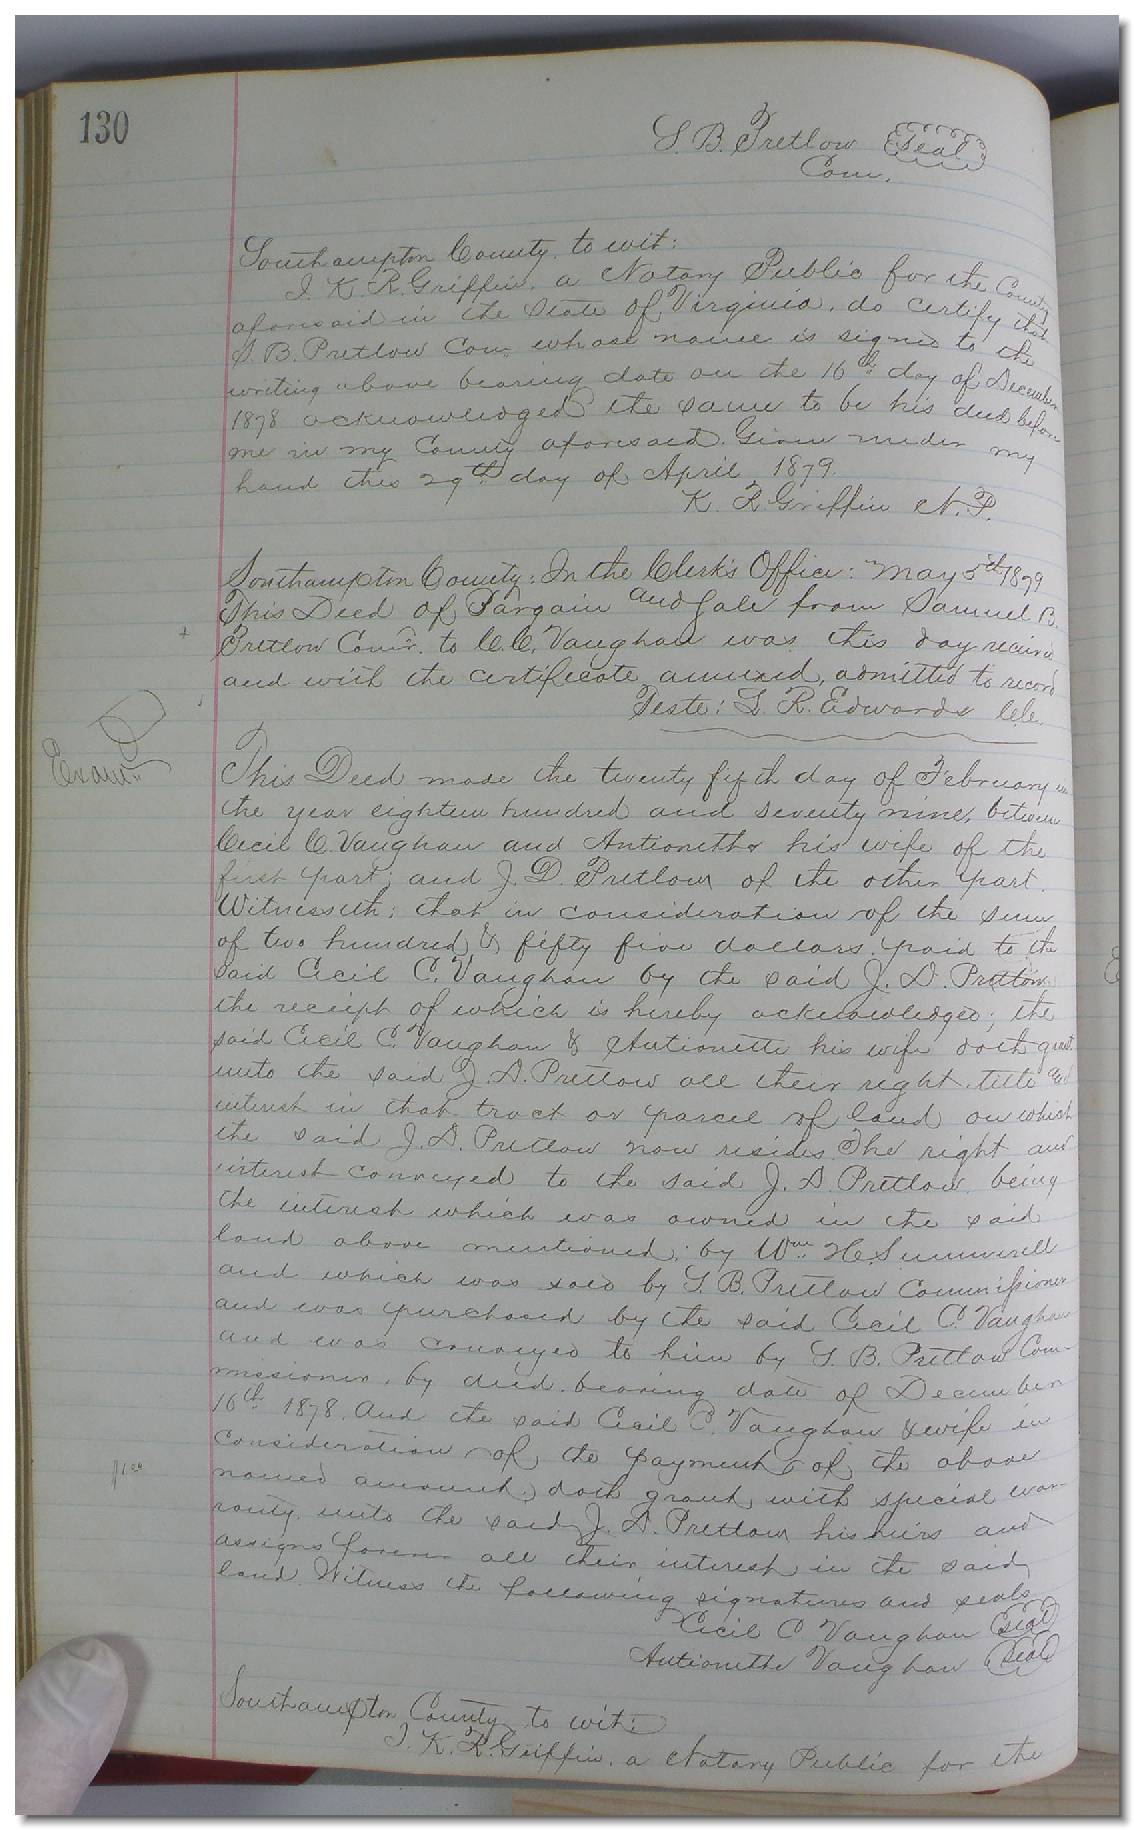 130
S. B. Pretlow Seal
Com.
Southampton County, to wit:
I. K. R. Griffin, a Notary Public for the County
aforesaid in the State of Virginia, do certify that
S. B. Pretlow Com. whose name is signed to the
writing above bearing date on the 16th day of December
1878 acknowledged the same to be his deed before
me in my County aforesaid. Given under my
hand this 29th day of April 1879.
K. R. Griffin N. P.
Southampton County: In the Clerk's Office: May 5th 1879
This Deed of Bargain and Sale from Samuel B.
Pretlow Comr. to C. C. Vaughan was this day received
and with the certificate annexed, admitted to record
Teste: L. R. Edwards C.C.
Examd.
This Deed made the twenty fifth day of February in
the year eighteen hundred and seventy nine, between
Cecil C. Vaughan and Antionette his wife of the
first part; and J. D. Pretlow of the other part.
Witnesseth; that in consideration of the sum
of two hundred & fifty five dollars paid to the
said Cecil C. Vaughan by the said J. D. Pretlow
the receipt of which is hereby acknowledged; the
said Cecil C. Vaughan & Antionette his wife doth grant
unto the said J. D. Pretlow all their right, title and
interest in that tract or parcel of land on which
the said J. D. Pretlow now resides. The right and
interest conveyed to the said J. D. Pretlow being
the interest which was owned in the said
land above mentioned, by Wm. H. Summerell
and which was sold by S. B. Pretlow Commissioner
and was purchased by the said Cecil C. Vaughan
and was conveyed to him by S. B. Pretlow Com-
missioner, by deed bearing date of December
16th 1878. And the said Cecil C. Vaughan & wife in
consideration of the payment of the above
named amount, doth grant with special war-
ranty unto the said J. D. Pretlow his heirs and
assigns forever all their interest in the said
land. Witness the following signatures and seals
Cecil C Vaughan Seal
Antionette Vaughan Seal
Southampton County to wit:
I. K. R. Griffin, a Notary Public for the